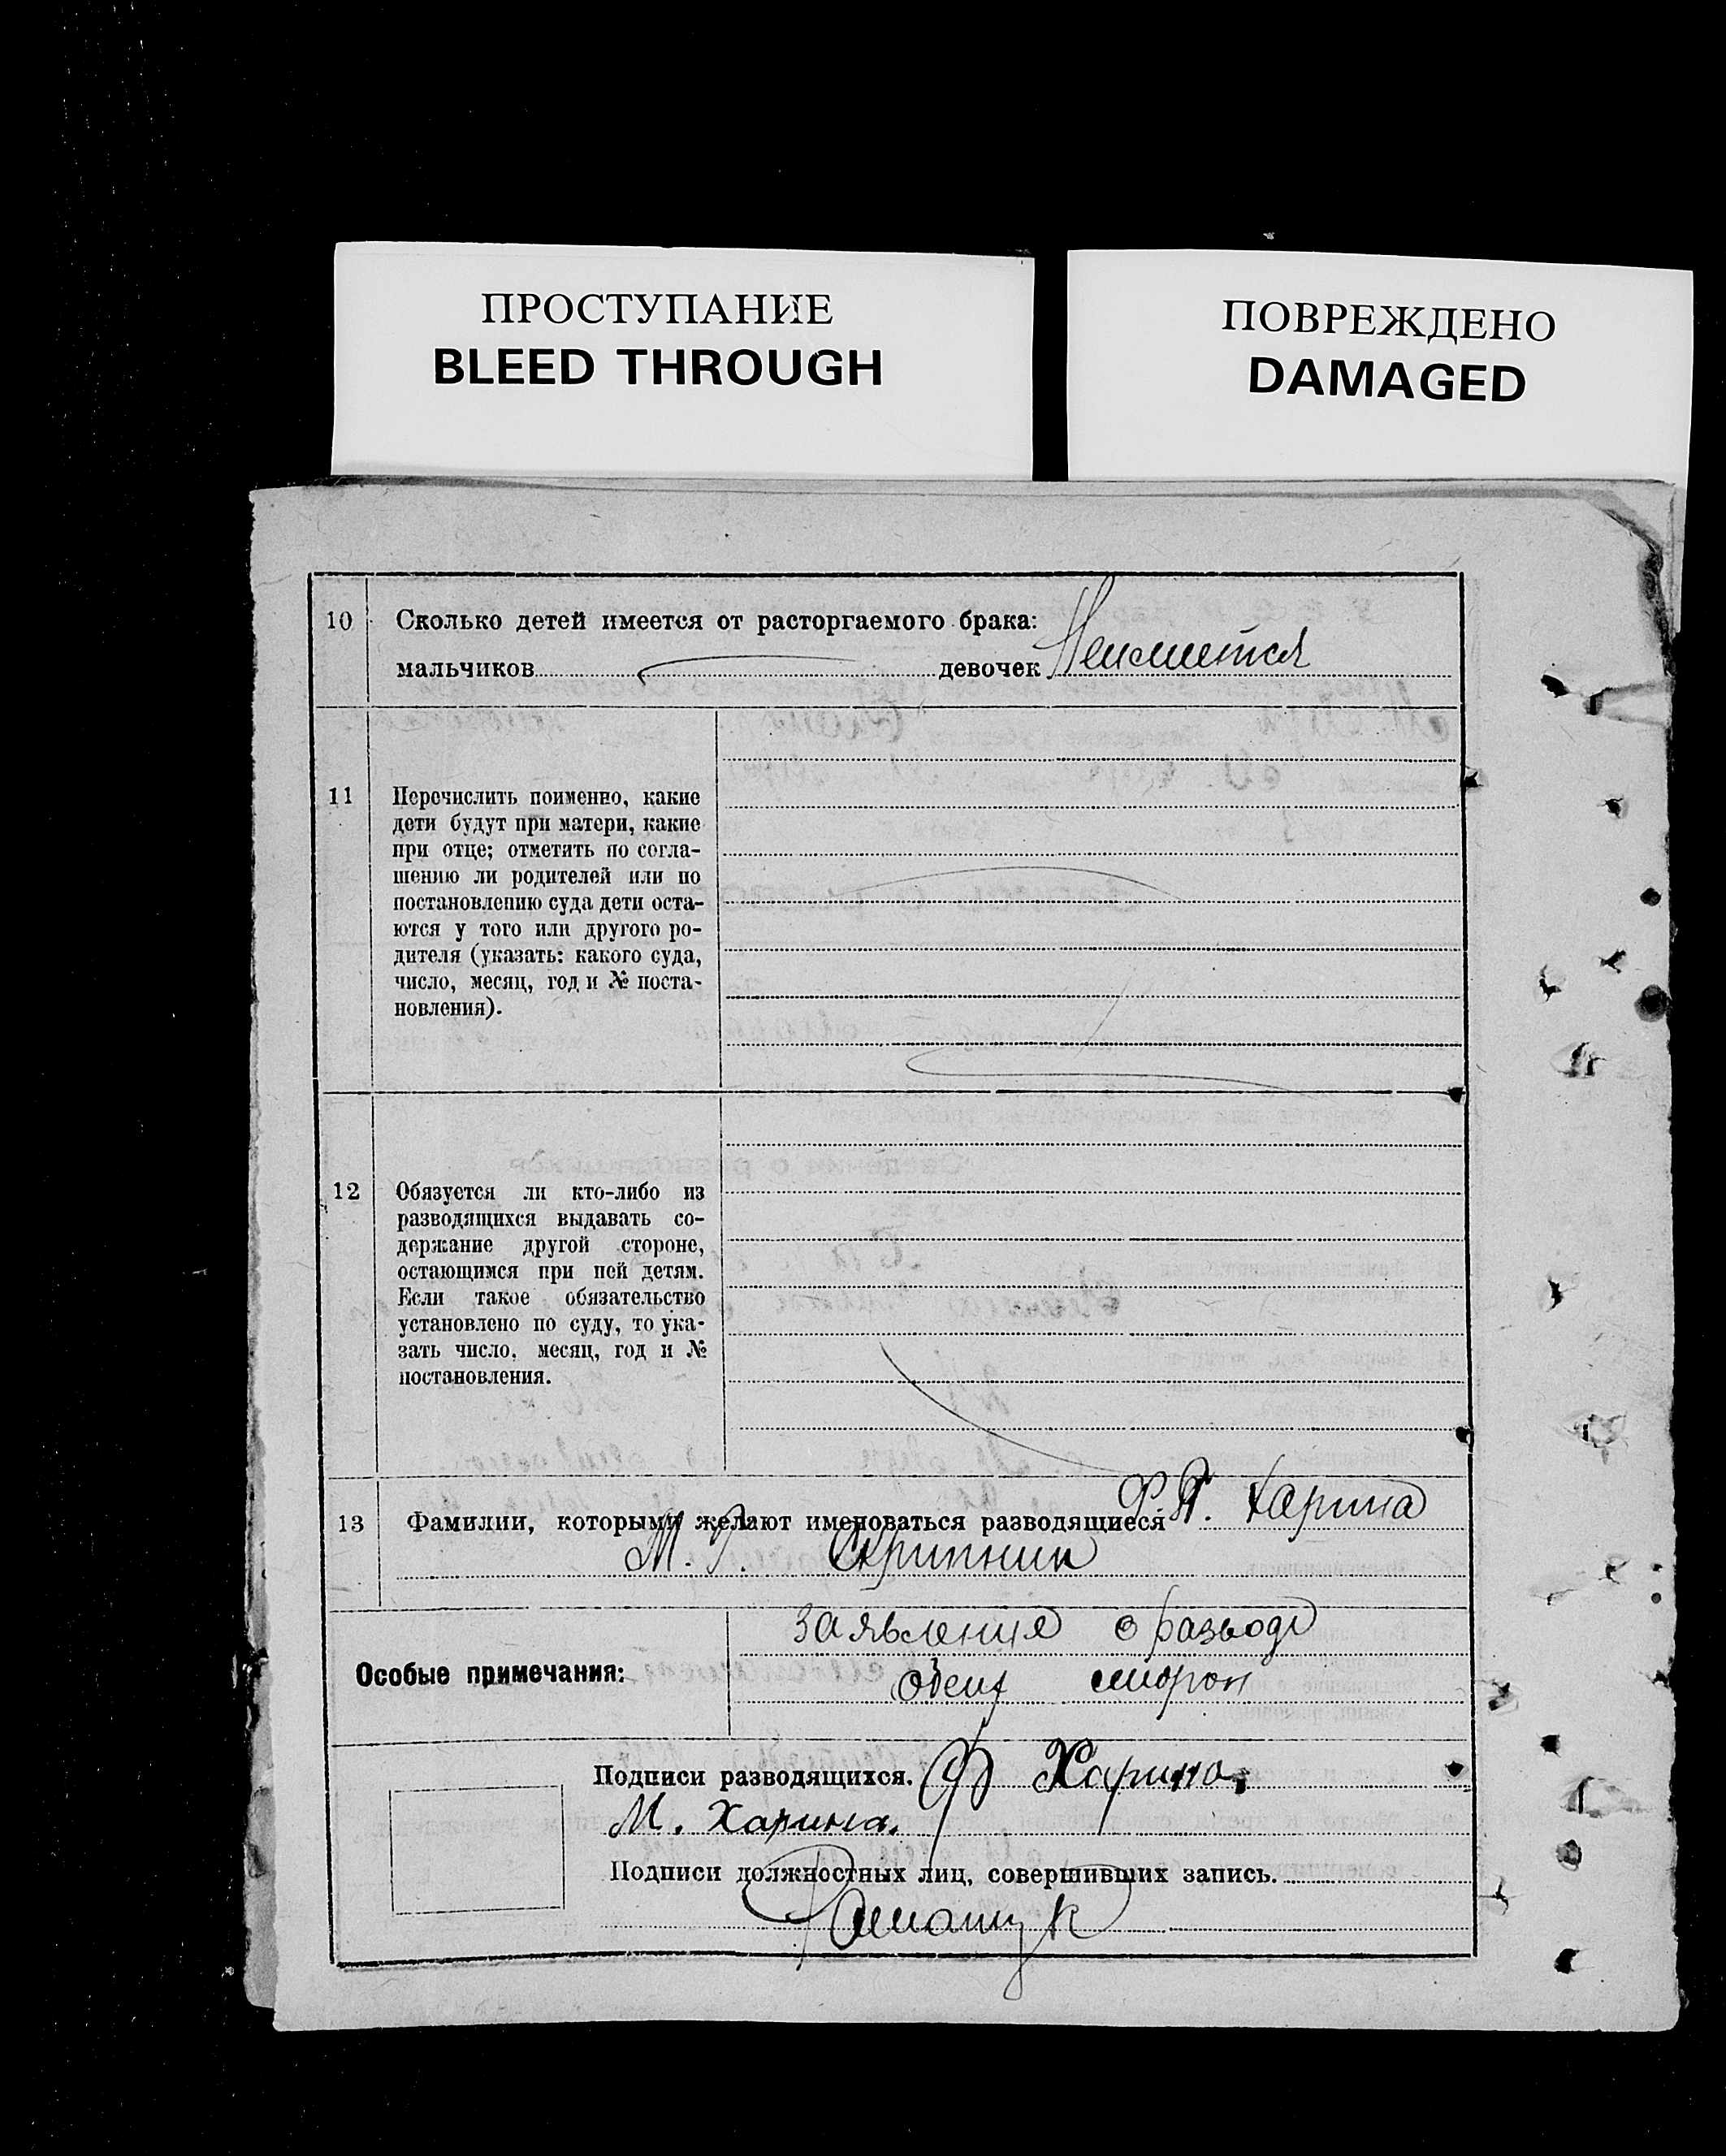 ПРОСТУПАНИЕ
BLEED THROUGH
ПОВРЕЖДЕНО
DAMAGED
10 Сколько детей имеется от расторгаемого брака:
мальчиков девочек Неимеится
11 Перечислить поименно, какие
дети будут при матери, какие
при отце; отметить по согла-
шению ли родителей или по
постановлению суда дети оста-
ются у того или другого ро-
дителя (указать: какого суда,
число, месяц, год и № поста-
новления).
12 Обязуется ли кто-либо из
разводящихся выдавать со-
держание другой стороне,
остающимся при ней детям.
Если такое обязательство
установлено по суду, то ука-
зать число, месяц, год и №
постановления.
13 Фамилии, которыми желают именоваться разводящиеся Ф. П. Харина
М. Скрипник
Особые примечания:
заявления о разводе
обеих сторон
Подписи разводящихся. Ф Харина
М. Харина.
Подписи должностных лиц, совершивших запись.